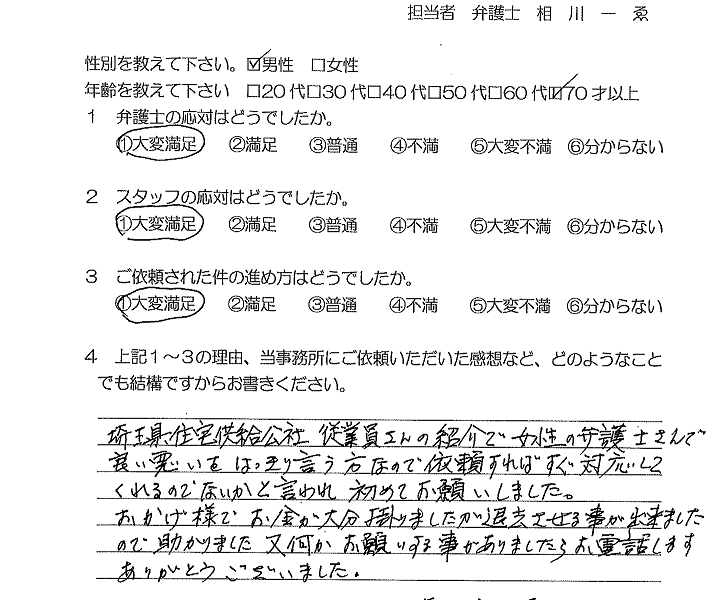 担当者 弁護士 相川 一 ゑ
性別を教えて下さい。☑男性 □女性
年齢を教えて下さい □20代□30代□40代□50代□60代☑70才以上
1 弁護士の応対はどうでしたか。
①大変満足 ②満足 ③普通 ④不満 ⑤大変不満 ⑥分からない
2 スタッフの応対はどうでしたか。
①大変満足 ②満足 ③普通 ④不満 ⑤大変不満 ⑥分からない
3 ご依頼された件の進め方はどうでしたか。
①大変満足 ②満足 ③普通 ④不満 ⑤大変不満 ⑥分からない
4 上記1~3の理由、当事務所にご依頼いただいた感想など、どのようなこと
でも結構ですからお書きください。
埼玉県住宅供給公社 従業員さんの紹介で女性の弁護士さんで
良い悪いをはっきり言う方なので依頼すればすぐ対応して
くれるのでないかと言われ 初めてお願いしました。
おかげ様でお金が大分掛りましたが退去させる事が出来ました
ので助かりました 又何かお願いする事がありましたらお電話します
ありがとうございました。